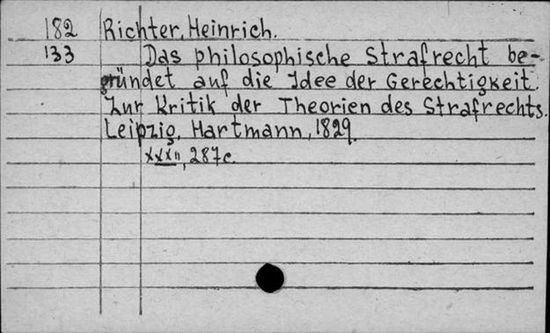 182 Richter, Heinrich.
133 Das philosophische Strafrecht be-
gründet auf die Idee der Gerechtigkeit.
Zur Kritik der Theorien des Strafrechts.
Leipzig, Hartmann, 1829.
XXXII, 287c.